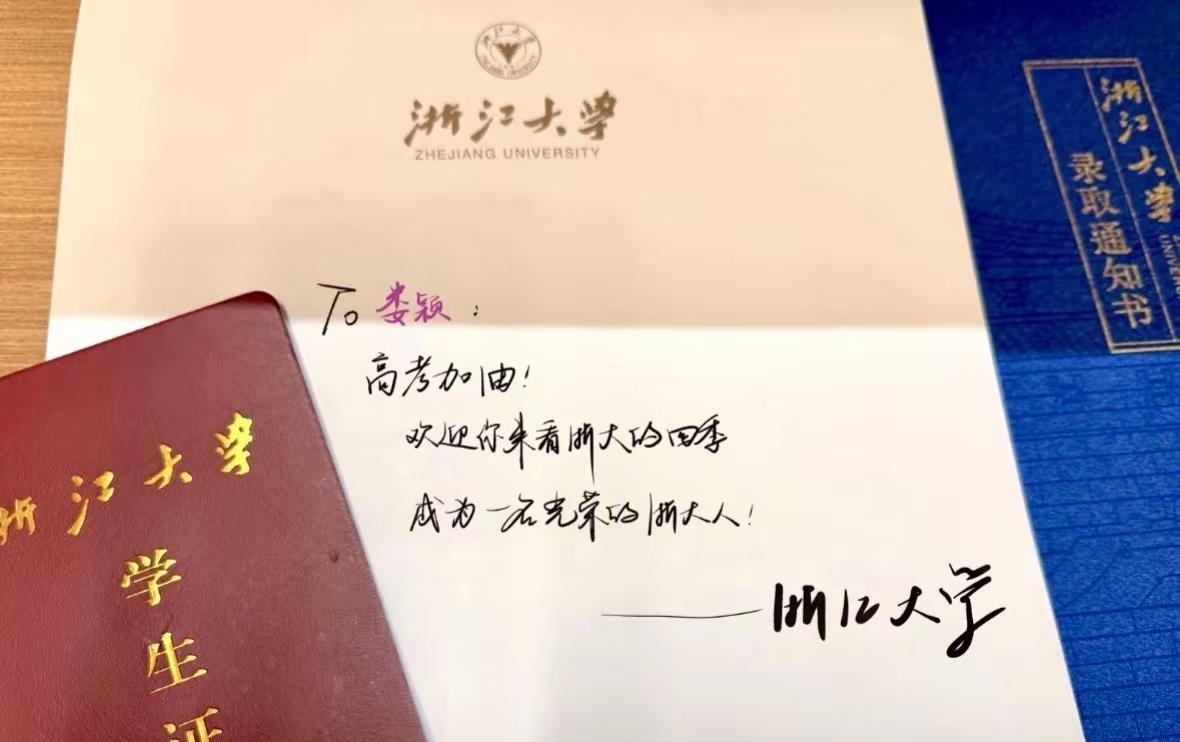 浙江大学
ZHEJIANG UNIVERSITY
To 娄颖：
高考加油！
欢迎你来看浙大的四季
成为一名光荣的浙大人！
——浙江大学
浙江大学
学生证
浙江大学
录取通知书